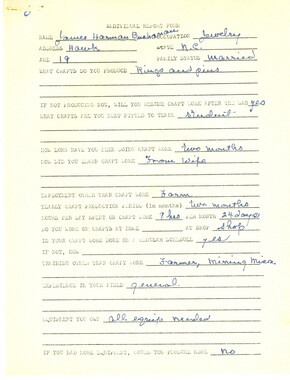 INDIVIDUAL REPORT FORM
NAME James Harman Buchanan OCCUPATION Jewelry
ADDRESS Hawk STATE N.C.
AGE 19 FAMILY STATUS Married
WHAT CRAFTS DO YOU PRODUCE Rings and pins
IF NOT PRODUCING NOW, WILL YOU RESUME CRAFT WORK AFTER THE WAR yes
WHAT CRAFTS ARE YOU BEST FITTED TO TEACH Student
HOW LONG HAVE YOU BEEN DOING CRAFT WORK Two months
HOW DID YOU LEARN CRAFT WORK From Wife
EMPLOYMENT OTHER THAN CRAFT WORK Farm
YEARLY CRAFT PRODUCTION PERIOD (in months) two months
HOURS PER DAY SPENT ON CRAFT WORK 7 hrs PER MONTH 24 days
DO YOU WORK ON CRAFTS AT HOME AT SHOP Shop
IS YOUR CRAFT WORK DONE ON A REGULAR SCHEDULE yes
IF NOT, HOW
TRAINING OTHER THAN CRAFT WORK Farmer, Mining Mica
EXPERIENCE IN YOUR FIELD general
EQUIPMENT YOU OWN all equip needed
IF YOU HAD MORE EQUIPMENT, COULD YOU PRODUCE MORE No